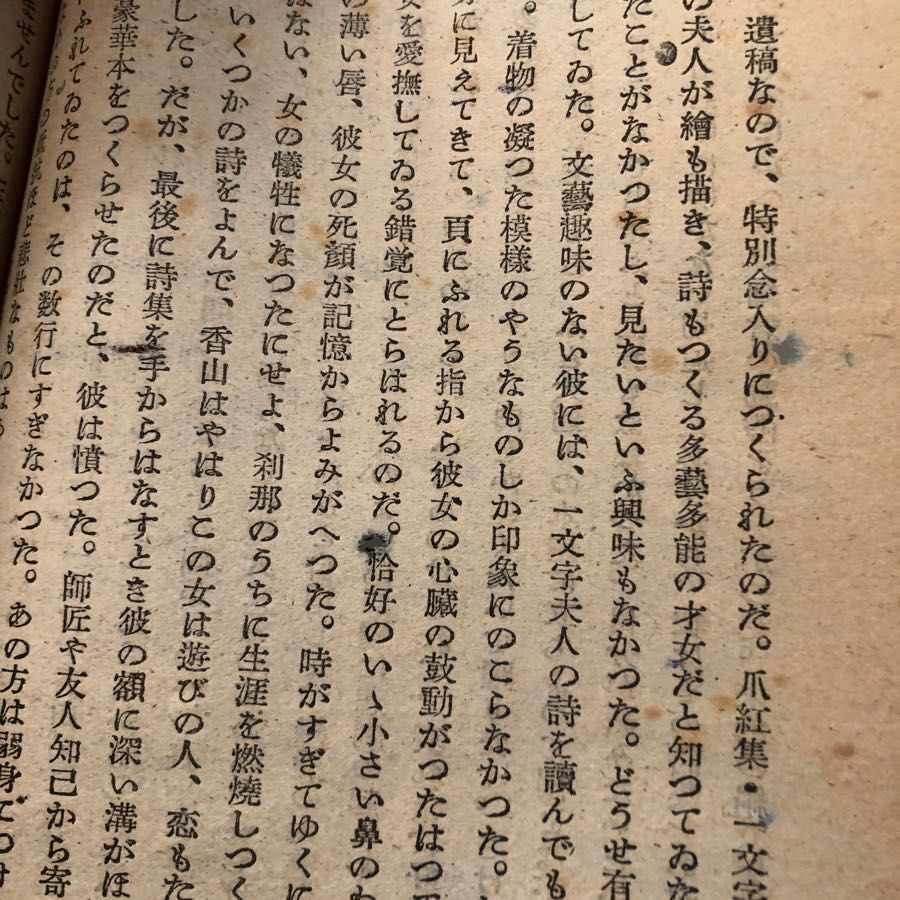 遺稿なので、特別念入りにつくられたのだ。爪紅集・一文字
夫人が繪も描き、詩もつくる多藝多能の才女だと知つてゐた
たことがなかつたし、見たいといふ興味もなかつた。どうせ有
してゐた。文藝趣味のない彼には、一文字夫人の詩を讀んでも
。着物の凝つた模様のやうなものしか印象にのこらなかつた。
に見えてきて、頁にふれる指から彼女の心臓の鼓動がつたはつて
を愛撫してゐる錯覚にとらはれるのだ。恰好のいゝ小さい鼻のわ
の薄い唇、彼女の死顔が記憶からよみがへつた。時がすぎてゆくに
はない、女の犠牲になつたにせよ、刹那のうちに生涯を燃燒しつく
いくつかの詩をよんで、香山はやはりこの女は遊びの人、恋もた
した。だが、最後に詩集を手からはなすとき彼の額に深い溝がほ
豪華本をつくらせたのだと、彼は憤つた。師匠や友人知己から寄
ふれてゐたのは、その数行にすぎなかつた。あの方は弱身でつけ
ほど悲壮なものはあ
ませんでした。